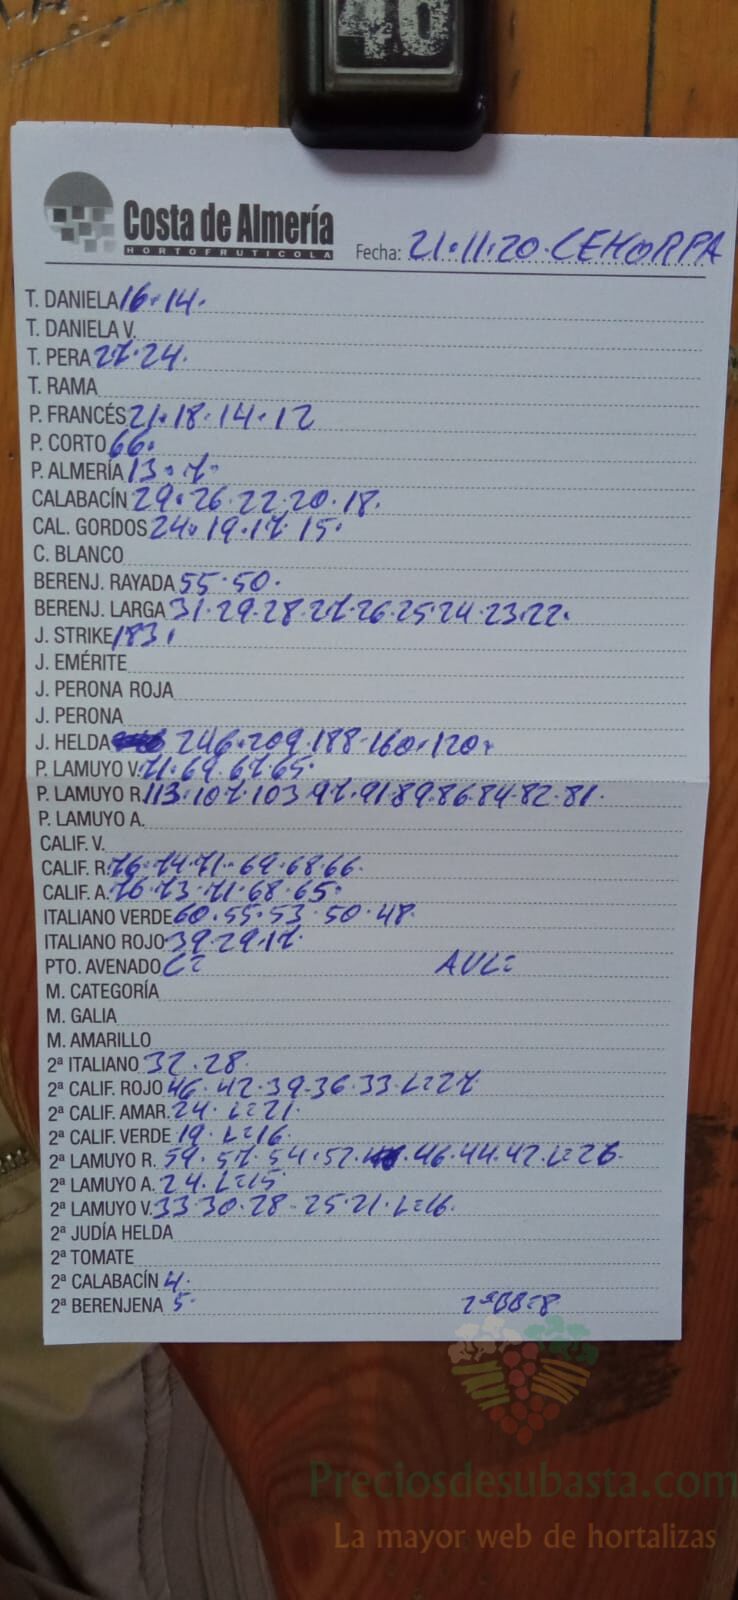 40
Costa de Almería
HORTOFRUTICOLA
Fecha: 21.11.20. CEHORPA
T. DANIELA 16.14.
T. DANIELA V.
T. PERA 27.24.
T. RAMA
P. FRANCÉS 21.18.14.12
P. CORTO 66.
P. ALMERÍA 13.7.
CALABACÍN 29.26.22.20.18.
CAL. GORDOS 24.19.17.15.
C. BLANCO
BERENJ. RAYADA 55.50.
BERENJ. LARGA 31.29.28.27.26.25.24.23.22.
J. STRIKE 183.
J. EMÉRITE
J. PERONA ROJA
J. PERONA
J. HELDA 246.209.188.160.120.
P. LAMUYO V. 71.69.67.65.
P. LAMUYO R. 113.107.103.97.91.89.86.84.82.81.
P. LAMUYO A.
CALIF. V.
CALIF. R. 76.74.71.69.68.66.
CALIF. A. 76.73.71.68.65.
ITALIANO VERDE 60.55.53.50.48.
ITALIANO ROJO 39.29.17.
PTO. AVENADO C= AVL=
M. CATEGORÍA
M. GALIA
M. AMARILLO
2ª ITALIANO 32.28.
2ª CALIF. ROJO 46.42.39.36.33.L=27
2ª CALIF. AMAR. 24. L=21.
2ª CALIF. VERDE 19. L=16.
2ª LAMUYO R. 59.57.54.52. 46.44.42.L=26.
2ª LAMUYO A. 24.L=15
2ª LAMUYO V. 33.30.28.25.21.L=16.
2ª JUDÍA HELDA
2ª TOMATE
2ª CALABACÍN 4.
2ª BERENJENA 5. 2ªBB=8
Preciosdesubasta.com
La mayor web de hortalizas